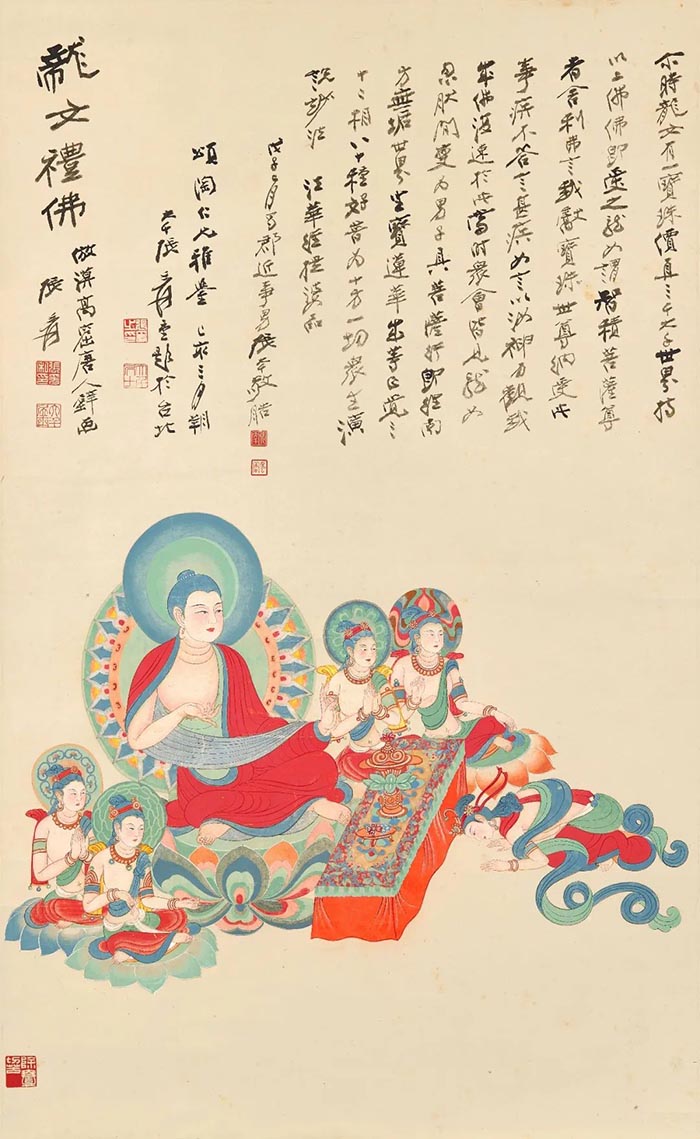 尔時龍女有一寶珠價直三千大千世界持
以上佛佛即受之龍女謂智積菩薩尊
者舍利弗言我獻寶珠世尊納受此
事疾不答言甚疾女言以汝神力觀我
成佛復速於此當時眾會皆見龍女
忽然間變為男子具菩薩行即往南
方無垢世界坐寶蓮華成等正覺三
十二相八十種好普為十方一切衆生演
說妙法 法華經提婆品
戊子 月蜀郡近事男張 敬
頌陶仁兄雅鑒 己亥三月朔
大千張爰重題於台北
龍女禮佛
倣漠高窟唐人壁画
張爰